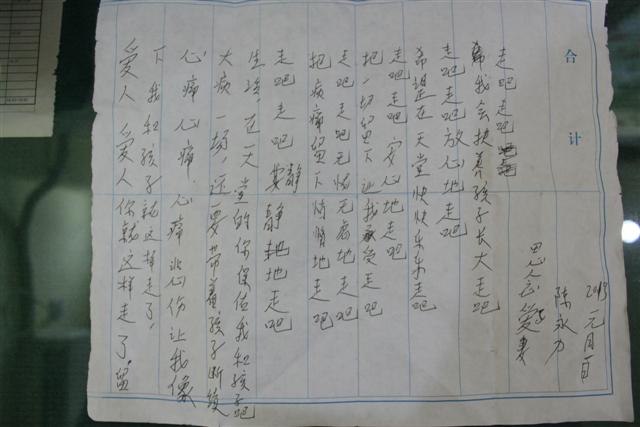 爱人 爱人 你就这样走了,留
下我和孩子就这样走了,
心痛心痛心痛悲伤让我像
大病一场,还要带着孩子断续
生活,在天堂的你保佑我和孩子吧
走吧走吧 静静地走吧
把病痛留下悄悄地走吧
走吧走吧无忧无虑地走吧
把一切留下让我承受走吧
走吧走吧安心地走吧
希望在天堂快快乐乐走吧
走吧走吧放心地走吧
我会扶养孩子长大走吧
走吧走吧
思念 爱妻
陈永
2013 元月一日
合计